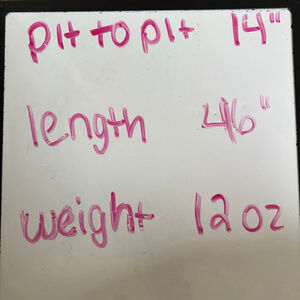 pit to pit 14"
length 46"
weight 12 oz